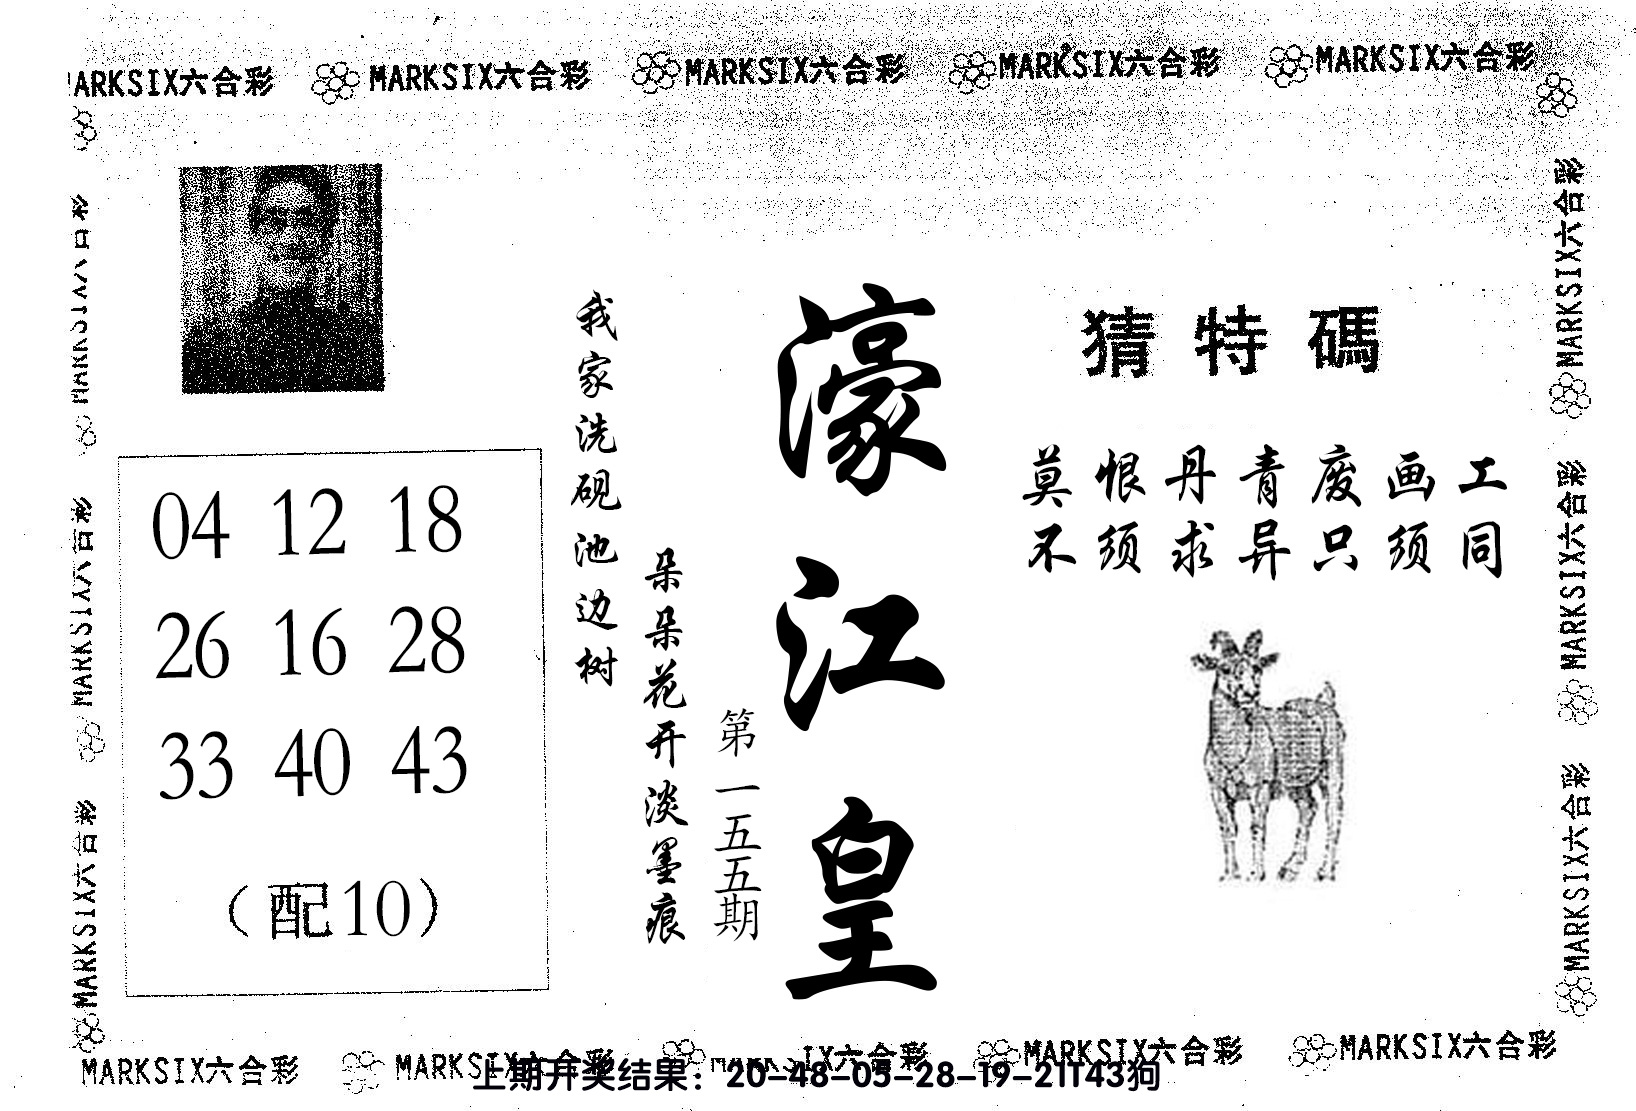 MARKSIX六合彩 MARKSIX六合彩 MARKSIX六合彩 MARKSIX六合彩
ARKSIX六合彩
猜特碼
莫恨丹青废画工
不须求异只须同
濠江皇
第一五五期
我家洗砚池边树
朵朵花开淡墨痕
04 12 18
26 16 28
33 40 43
（配10）
MARKSIX六合彩
MARKSIX六合彩
MARKSIX六合彩
MARKSIX六合彩
MARKSIX六合彩
MARKSIX六合彩
MARKSIX六合彩 MARKSIX六合彩 IX六合彩 MARKSIX六合彩 MARKSIX六合彩
上期开奖结果：20-48-05-28-19-21T43狗